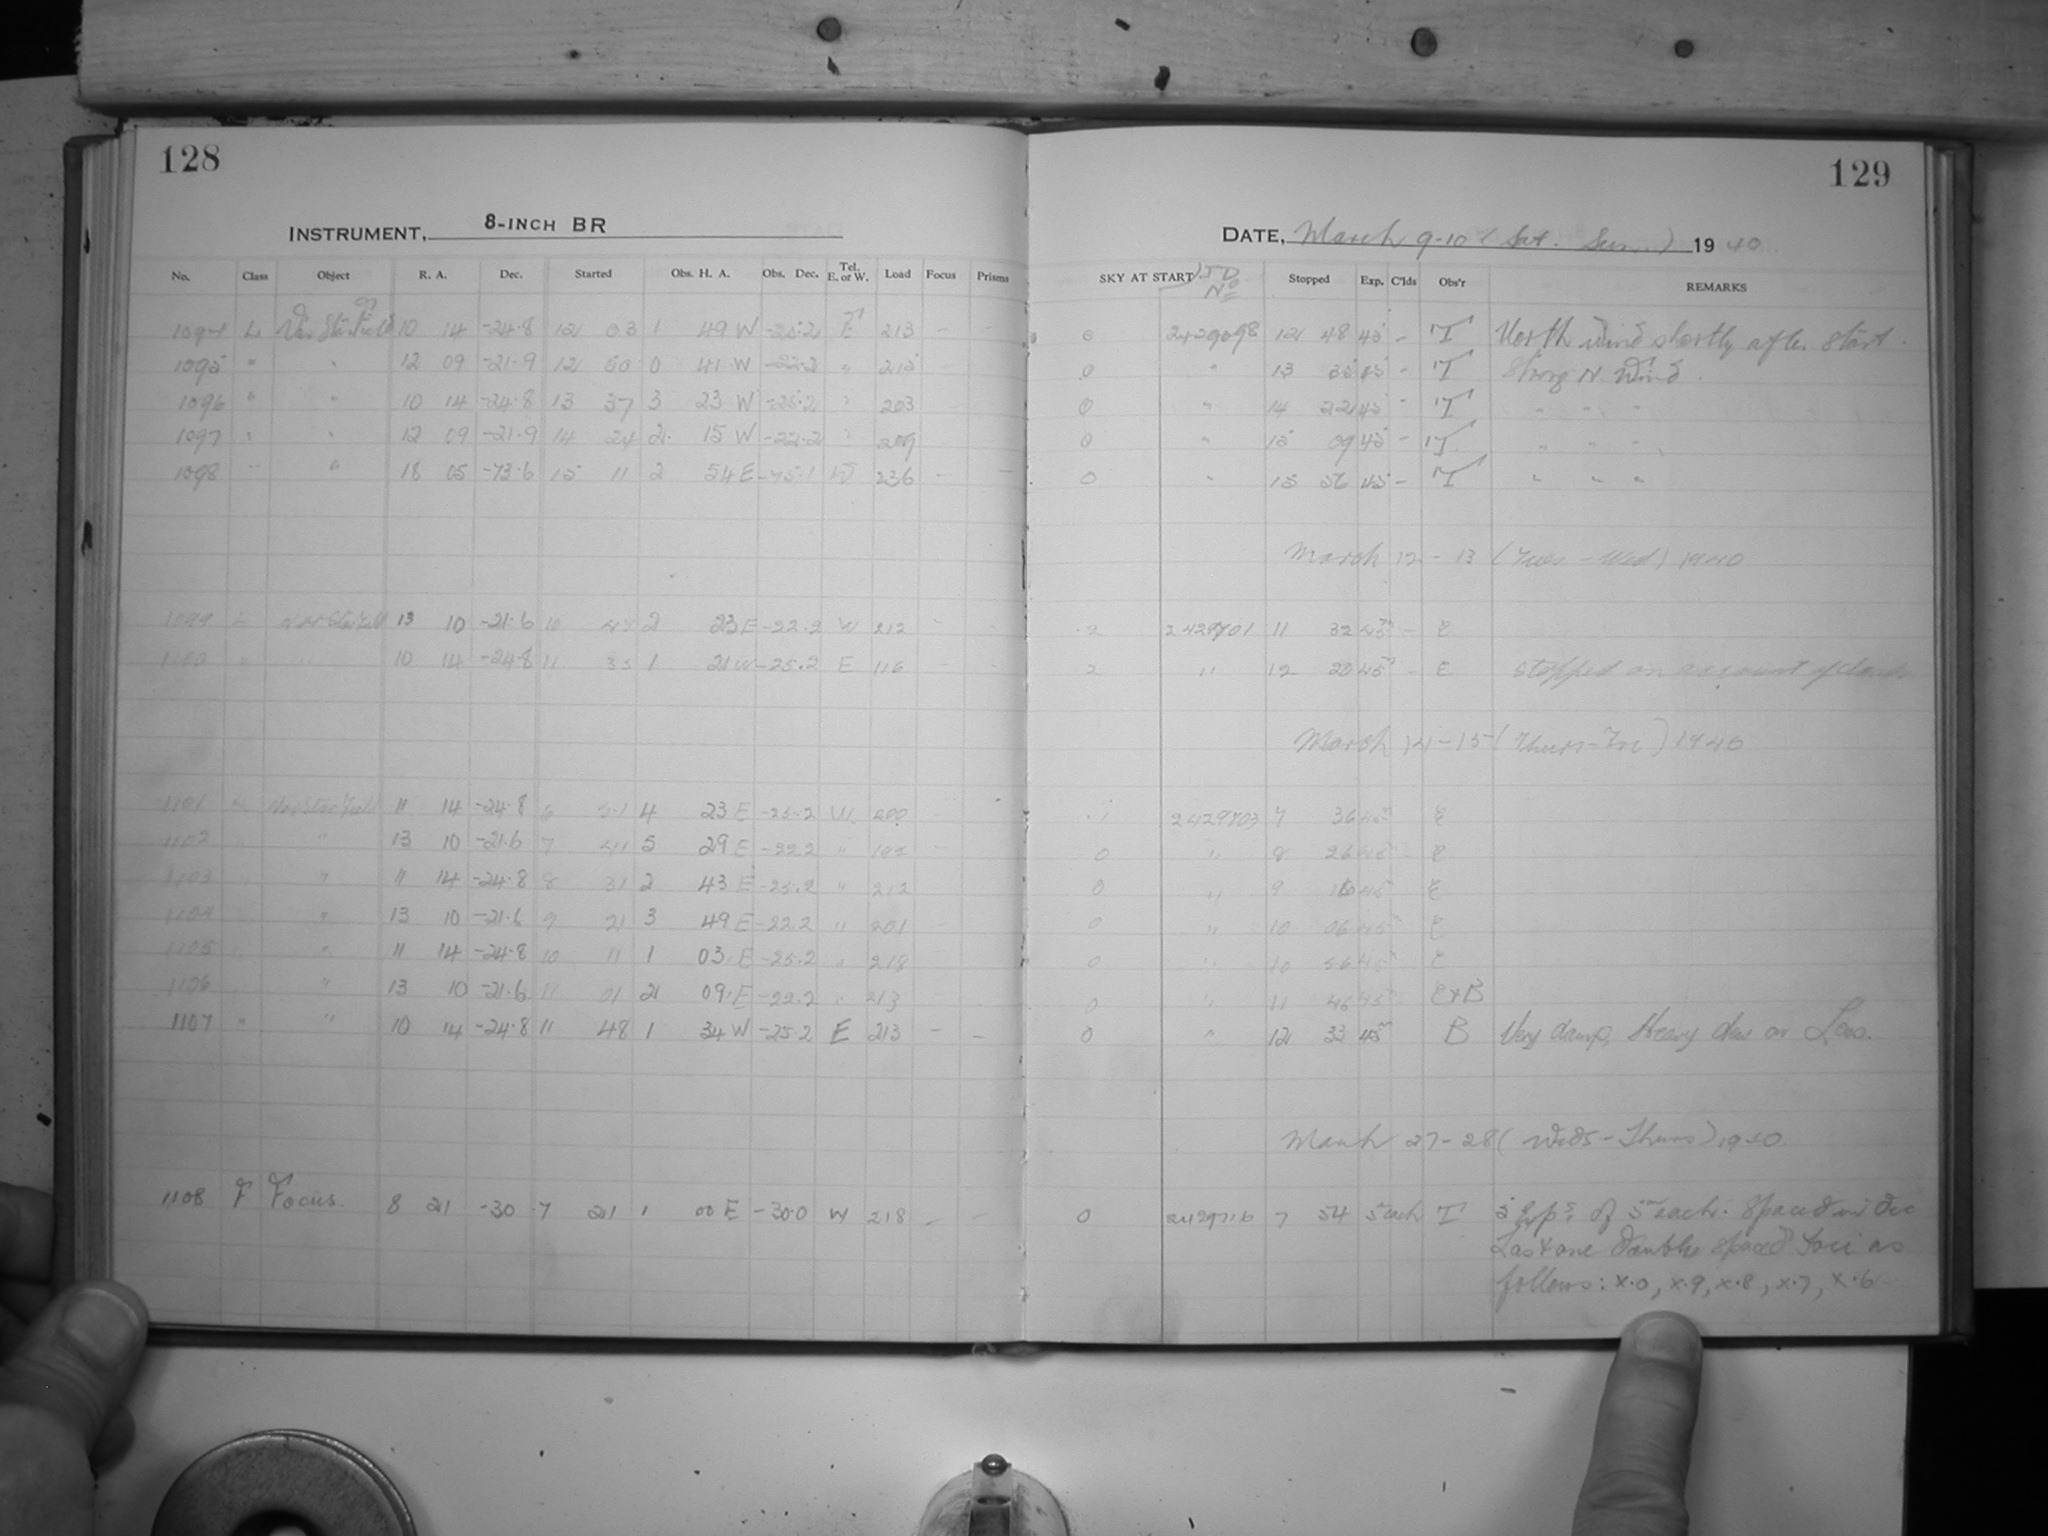 128
129
INSTRUMENT, 8-INCH BR
DATE, March 9-10 (Sat. Sun.) 1940
No. Class Object R. A. Dec. Started Obs. H. A. Obs. Dec. Tel. E. or W. Load Focus Prisms SKY AT START J D No Stopped Exp. C'lds Obs'r REMARKS
1094 L Var. Star Field 10 14 -24.8 12 03 1 49 W -25.2 E 213 - - 0 2429098 12 48 45 - T North wind shortly after start.
1095 " " 12 09 -21.9 12 50 0 41 W -22.2 " 215 - 0 " 13 35 45 - T Strong N Wind.
1096 " " 10 14 -24.8 13 37 3 23 W -25.2 " 203 0 " 14 22 45 - T " " "
1097 " " 12 09 -21.9 14 24 2 15 W -22.2 " 209 0 " 15 09 45 - T " " "
1098 " " 18 05 -73.6 15 11 2 54 E -75.1 W 236 - - 0 " 15 56 45 - T " " "
March 12 - 13 (Tues - Wed) 1940
1099 L Var Star Field 13 10 -21.6 10 47 2 23 E -22.2 W 212 - - 2 2429101 11 32 45 - E
1100 " " 10 14 -24.8 11 35 1 21 W -25.2 E 116 - - 2 " 12 20 45 - E stopped on account of clouds
March 14-15 (Thurs-Fri) 1940
1101 L Var Star Field 11 14 -24.8 6 51 4 23 E -25.2 W 200 1 2429103 7 36 45 E
1102 " " 13 10 -21.6 7 41 5 29 E -22.2 " 0 " 8 26 45 E
1103 " " 11 14 -24.8 8 31 2 43 E -25.2 " 212 0 " 9 16 45 E
1104 " " 13 10 -21.6 9 21 3 49 E -22.2 " 201 0 " 10 06 45 E
1105 " " 11 14 -24.8 10 11 1 03 E -25.2 " 218 0 " 10 56 45 E
1106 " " 13 10 -21.6 11 01 2 09 E -22.2 " 213 0 " 11 46 45 E+B
1107 " " 10 14 -24.8 11 48 1 34 W -25.2 E 213 - - 0 " 12 33 45 B Very damp, Heavy dew on Lens.
March 27-28 (Weds-Thurs) 1940
1108 F Focus. 8 21 -30 7 21 1 00 E -30.0 W 218 - - 0 2429116 7 54 5m each T 5 Exps. of 5m each. Spaced in Dec
Last one double spaced Foci as
follows: x.0, x.9, x.8, x.7, x.6